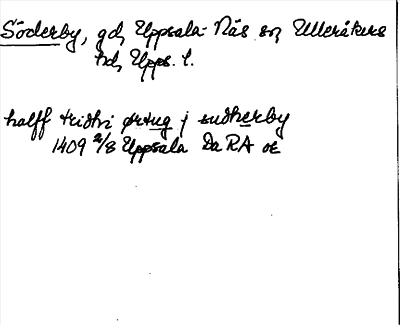 Söderby, gd, Uppsala-Näs sn, Ulleråkers
hd, Upps. l.
halff tridhi ørtug j sudherby
1409 2/8 Uppsala Da RA or